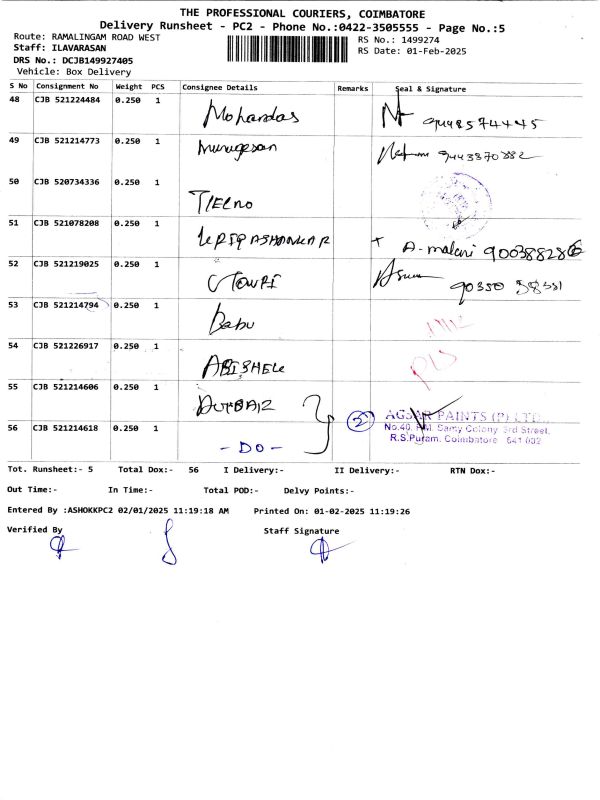 THE PROFESSIONAL COURIERS, COIMBATORE
Delivery Runsheet - PC2 - Phone No.:0422-3505555 - Page No.:5
Route: RAMALINGAM ROAD WEST
RS No.: 1499274
Staff: ILAVARASAN
RS Date: 01-Feb-2025
DRS No.: DCJB149927405
Vehicle: Box Delivery
S No Consignment No Weight PCS Consignee Details Remarks Seal & Signature
48 CJB 521224484 0.250 1 Mohandas
49 CJB 521214773 0.250 1 Murugesan
50 CJB 520734336 0.250 1
51 CJB 521078208 0.250 1 A. malani
52 CJB 521219025 0.250 1 90350 58551
53 CJB 521214794 0.250 1 Babu
54 CJB 521226917 0.250 1
55 CJB 521214606 0.250 1
2 AGSAR PAINTS (P) LTD.,
No.40, P.M. Samy Colony 3rd Street,
R.S.Puram, Coimbatore 641 002
56 CJB 521214618 0.250 1 - DO -
Tot. Runsheet:- 5 Total Dox:- 56 I Delivery:- II Delivery:- RTN Dox:-
Out Time:- In Time:- Total POD:- Delvy Points:-
Entered By :ASHOKKPC2 02/01/2025 11:19:18 AM Printed On: 01-02-2025 11:19:26
Verified By Staff Signature